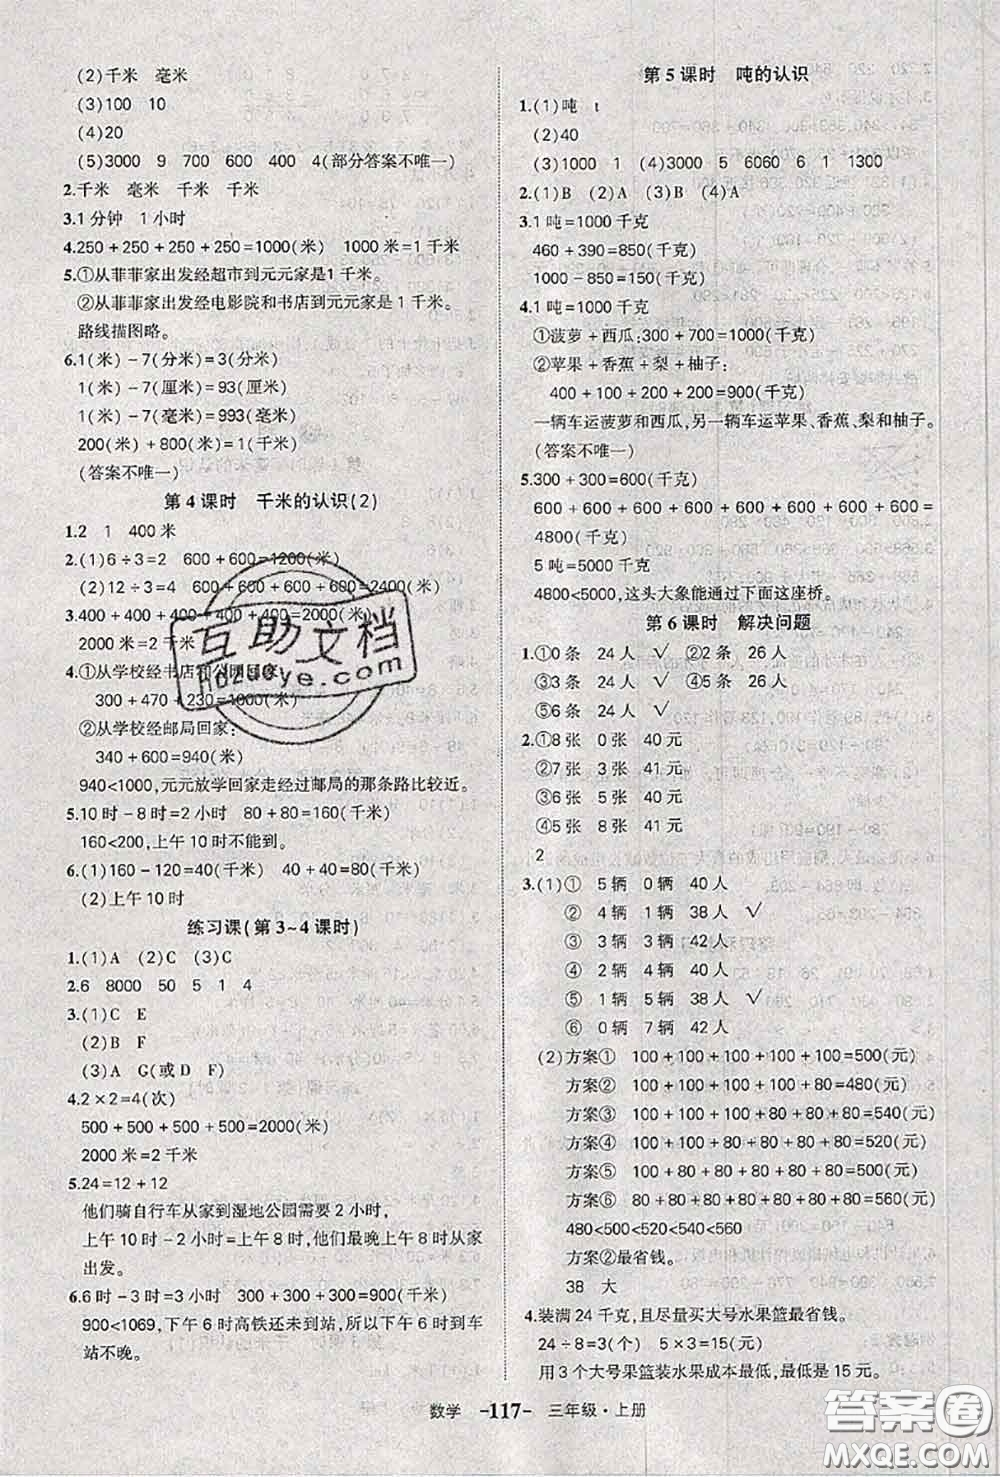 (2)千米 毫米
(3)100 10
(4)20
(5)3000 9 700 600 400 4(部分答案不唯一)
2.千米 毫米 千米 千米
3.1 分钟 1 小时
4.250+250+250+250=1000(米) 1000 米=1 千米
5.①从菲菲家出发经超市到元元家是1 千米。
②从菲菲家出发经电影院和书店到元元家是1 千米。
路线描图略。
6.1(米)-7(分米)=3(分米)
1(米)-7(厘米)=93(厘米)
1(米)-7(毫米)=993(毫米)
200(米)+800(米)=1(千米)
(答案不唯一)
第 4 课时 千米的认识(2)
1.2 1 400 米
2.(1)6÷3=2 600+600=1200(米)
(2)12÷3=4 600+600+600+600=2400(米)
3.400+400+400+400+400=2000(米)
2000 米=2 千米
4.①从学校经书店和公园回家:
300+470+230=1000(米)
②从学校经邮局回家:
340+600=940(米)
940<1000,元元放学回家走经过邮局的那条路比较近。
5.10 时-8 时=2 小时 80+80=160(千米)
160<200,上午 10 时不能到。
6.(1)160-120=40(千米) 40+40=80(千米)
(2)上午 10 时
练习课(第 3~4 课时)
1.(1)A (2)C (3)C
2.6 8000 50 5 1 4
3.(1)C E
(2)B F
(3)A G(或 D F)
4.2×2=4(次)
500+500+500+500=2000(米)
2000 米=2 千米
5.24=12+12
他们骑自行车从家到湿地公园需要 2 小时,
上午 10 时-2 小时=上午 8 时,他们最晚上午 8 时从家
出发。
6.6 时-3 时=3 小时 300+300+300=900(千米)
900<1069,下午 6 时高铁还未到站,所以下午 6 时到车
站不晚。
第 5 课时 吨的认识
1.(1)吨 t
(2)40
(3)1000 1 4000 5 6060 6 1 1300
2.(1)B (2)A (3)B (4)A
3.1 吨=1000 千克
460+390=850(千克)
1000-850=150(千克)
4.1 吨=1000 千克
①菠萝+西瓜:300+700=1000(千克)
②苹果+香蕉+梨+柚子:
400+100+200+200=900(千克)
一辆车运菠萝和西瓜,另一辆车运苹果、香蕉、梨和柚子。
(答案不唯一)
5.300+300=600(千克)
600+600+600+600+600+600+600+600=
4800(千克)
5 吨=5000 千克
4800<5000,这头大象能通过下面这座桥。
第 6 课时 解决问题
1.①0 条 24 人 √ ②2 条 26 人
③3 条 24 人 √ ④5 条 26 人
⑤6 条 24 人 √
2.①8 张 0 张 40 元
②7 张 3 张 41 元
③6 张 5 张 40 元
④5 张 8 张 41 元
2
3.(1)① 5 辆 0 辆 40 人
② 4 辆 1 辆 38 人 √
③ 3 辆 3 辆 42 人
④ 2 辆 4 辆 40 人
⑤ 1 辆 5 辆 38 人 √
⑥ 0 辆 7 辆 42 人
(2)方案① 100+100+100+100+100=500(元)
方案② 100+100+100+100+80=480(元)
方案③ 100+100+100+80+80+80=540(元)
方案④ 100+100+80+80+80+80=520(元)
方案⑤ 100+80+80+80+80+80=500(元)
方案⑥ 80+80+80+80+80+80+80=560(元)
480<500<520<540<560
方案②最省钱。
38 大
4.装满 24 千克,且尽量买大号水果篮最省钱。
24÷8=3(个) 5×3=15(元)
用 3 个大号果篮装水果成本最低,最低是 15 元。
数学 -117- 三年级·上册
互助文档
hozuoye.com
答案圈
MXQE.COM